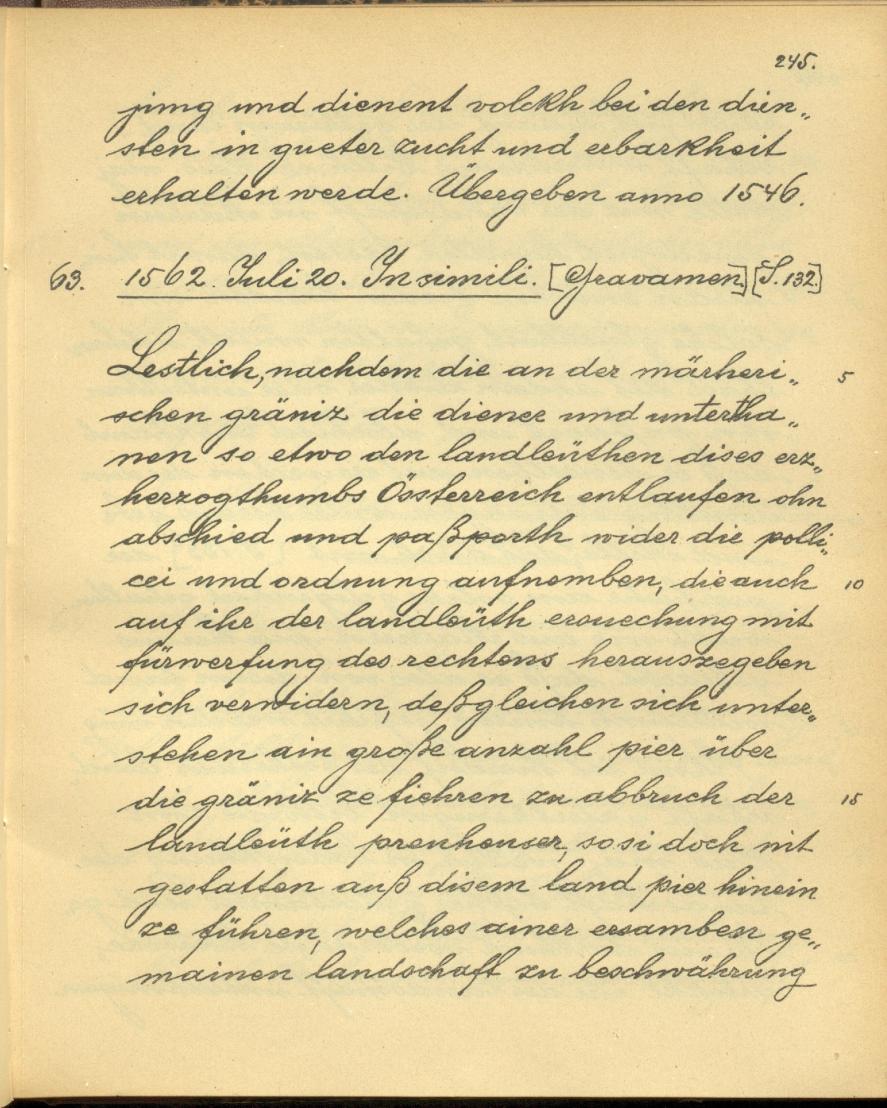 245.
jung und dienent volckh bei den dien„
sten in gueter zucht und erbarkheit
erhalten werde. Übergeben anno 1546.
63. 1562. Juli 20. In simili. [Gravamen.] [S. 132.]
Lestlich, nachdem die an der märheri„ 5
schen gräniz die diener und untertha„
nen so etwo den landleüthen dises erz„
herzogthumbs Össterreich entlaufen ohn
abschied und paßporth wider die polli„
cei und ordnung aufnemben, die auch 10
auf ihr der landleüth ersuechung mit
fürwerfung des rechtens herauszegeben
sich verwidern, deßgleichen sich unter„
stehen ain große anzahl pier über
die gräniz ze fiehren zu abbruch der 15
landleüth preuheuser, so si doch nit
gestatten auß disem land pier hinein
ze führen, welches ainer ersamben ge„
mainen landschaft zu beschwährung